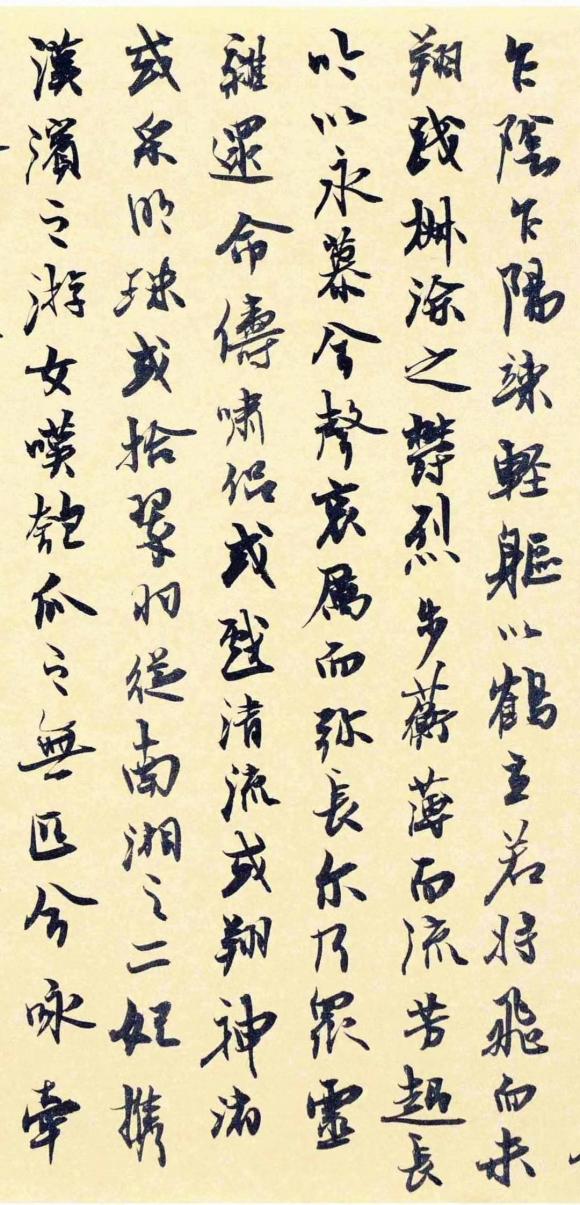 乍陰乍陽竦輕軀以鶴立若將飛而未
翔踐椒塗之鬱烈步蘅薄而流芳超長
吟以永慕兮聲哀厲而弥長尔乃眾靈
雜遝命儔嘯侶或戲清流或翔神渚
或采明珠或拾翠羽從南湘之二妃攜
漢濱之游女嘆匏瓜之無匹兮詠牽